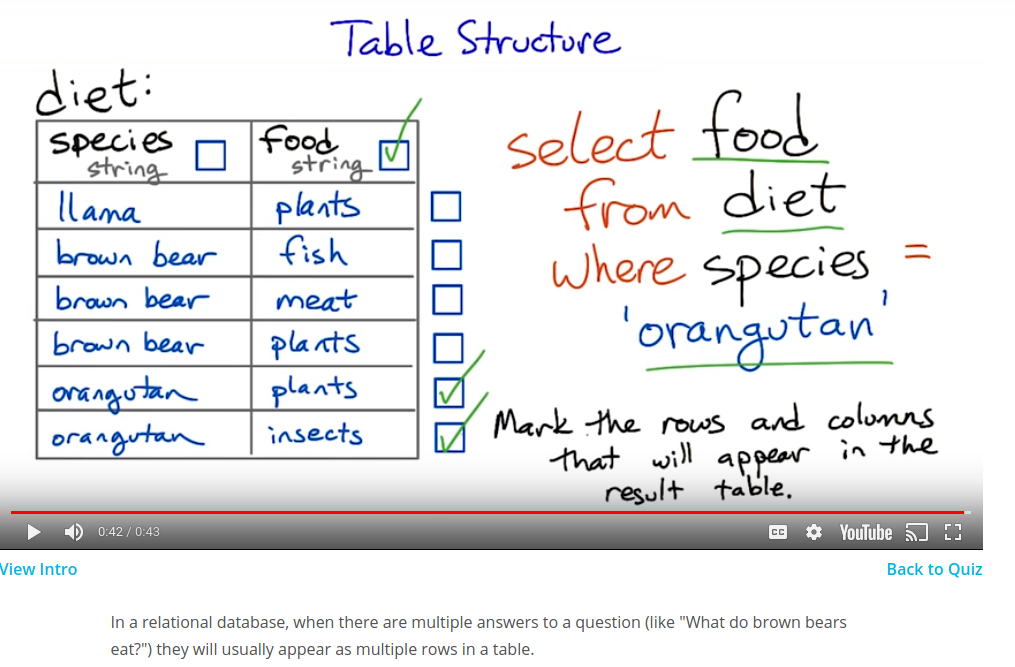 Table Structure
diet:
species food
string string
llama plants
brown bear fish
brown bear meat
brown bear plants
orangutan plants
orangutan insects
select food
from diet
where species =
'orangutan'
Mark the rows and columns
that will appear in the
result table.
0:42 / 0:43 CC YouTube
View Intro Back to Quiz
In a relational database, when there are multiple answers to a question (like "What do brown bears
eat?") they will usually appear as multiple rows in a table.